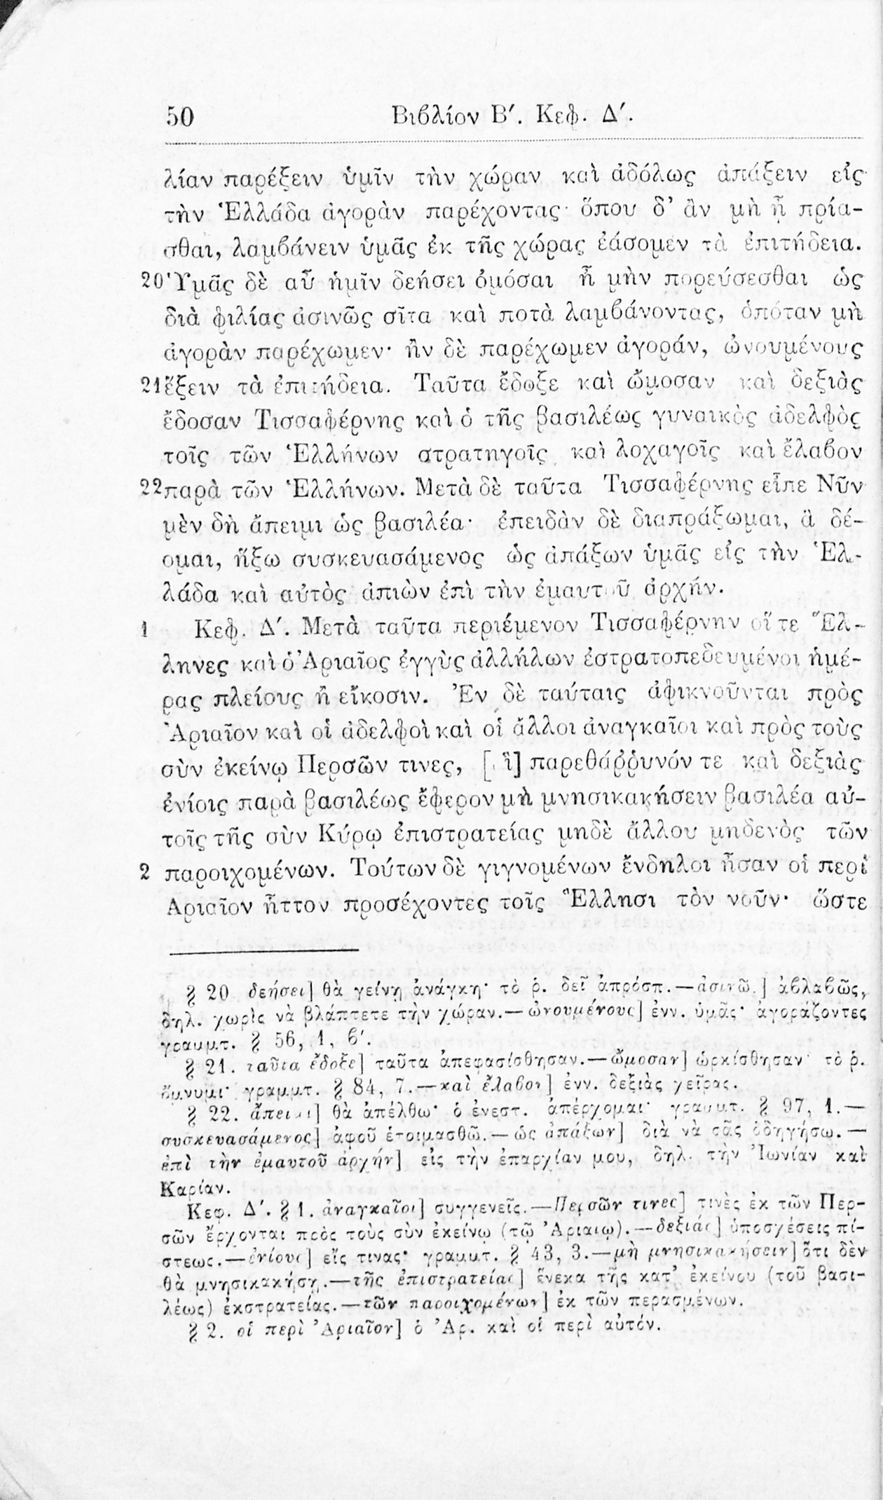 50 Βιβλίον Β′. Κεφ. Δ′.
λίαν παρέξειν ὑμῖν τὴν χώραν καὶ ἀδόλως ἀπάξειν εἰς
τὴν Ἑλλάδα ἀγορὰν παρέχοντας· ὅπου δ’ ἂν μὴ ᾖ πρία-
σθαι, λαμβάνειν ὑμᾶς ἐκ τῆς χώρας ἐάσομεν τὰ ἐπιτήδεια.
20 Ὑμᾶς δὲ αὖ ἡμῖν δεήσει ὀμόσαι ἦ μὴν πορεύσεσθαι ὡς
διὰ φιλίας ἀσινῶς σῖτα καὶ ποτὰ λαμβάνοντας, ὁπόταν μὴ
ἀγορὰν παρέχωμεν· ἢν δὲ παρέχωμεν ἀγοράν, ὠνουμένους
21 ἕξειν τὰ ἐπιτήδεια. Ταῦτα ἔδοξε καὶ ὤμοσαν καὶ δεξιὰς
ἔδοσαν Τισσαφέρνης καὶ ὁ τῆς βασιλέως γυναικὸς ἀδελφὸς
τοῖς τῶν Ἑλλήνων στρατηγοῖς καὶ λοχαγοῖς καὶ ἔλαβον
22 παρὰ τῶν Ἑλλήνων. Μετὰ δὲ ταῦτα Τισσαφέρνης εἶπε Νῦν
μὲν δὴ ἄπειμι ὡς βασιλέα· ἐπειδὰν δὲ διαπράξωμαι, ἃ δέ-
ομαι, ἥξω συσκευασάμενος ὡς ἀπάξων ὑμᾶς εἰς τὴν Ἑλ-
λάδα καὶ αὐτὸς ἀπιὼν ἐπὶ τὴν ἐμαυτοῦ ἀρχήν.
1 Κεφ. Δ′. Μετὰ ταῦτα περιέμενον Τισσαφέρνην οἵ τε Ἕλ-
ληνες καὶ ὁ Ἀριαῖος ἐγγὺς ἀλλήλων ἐστρατοπεδευμένοι ἡμέ-
ρας πλείους ἢ εἴκοσιν. Ἐν δὲ ταύταις ἀφικνοῦνται πρὸς
Ἀριαῖον καὶ οἱ ἀδελφοὶ καὶ οἱ ἄλλοι ἀναγκαῖοι καὶ πρὸς τοὺς
σὺν ἐκείνῳ Περσῶν τινες, παρεθάῤῥυνόν τε καὶ δεξιὰς
ἐνίοις παρὰ βασιλέως ἔφερον μὴ μνησικακήσειν βασιλέα αὐ-
τοῖς τῆς σὺν Κύρῳ ἐπιστρατείας μηδὲ ἄλλου μηδενὸς τῶν
2 παροιχομένων. Τούτων δὲ γιγνομένων ἔνδηλοι ἦσαν οἱ περὶ
Ἀριαῖον ἧττον προσέχοντες τοῖς Ἕλλησι τὸν νοῦν· ὥστε
§ 20 δεήσει] θὰ γείνῃ ἀνάγκη· τὸ ῥ. δεῖ ἀπρόσπ.—ἀσινῶς] ἀβλαβῶς,
δηλ. χωρὶς νὰ βλάπτετε τὴν χώραν.—ὠνουμένους] ἐνν. ὑμᾶς· ἀγοράζοντες
γραμμτ. § 56, 1, 6′.
§ 21. ταῦτα ἔδοξε] ταῦτα ἀπεφασίσθησαν.—ὤμοσαν] ὡρκίσθησαν· τὸ ῥ.
ὄμνυμι· γραμμτ. § 84, 7.—καὶ ἔλαβον] ἐνν. δεξιὰς χεῖρας.
§ 22. ἄπειμι] θὰ ἀπέλθω· ὁ ἐνεστ. ἀπέρχομαι· γραμμτ. § 97, 1.—
συσκευασάμενος] ἀφοῦ ἑτοιμασθῶ.—ὡς ἀπάξων] διὰ νὰ σᾶς ὁδηγήσω.—
ἐπὶ τὴν ἐμαυτοῦ ἀρχήν] εἰς τὴν ἐπαρχίαν μου, δηλ. τὴν Ἰωνίαν καὶ
Καρίαν.
Κεφ. Δ′. § 1. ἀναγκαῖοι] συγγενεῖς.—Περσῶν τινες] τινὲς ἐκ τῶν Περ-
σῶν ἔρχονται πρὸς τοὺς σὺν ἐκείνῳ (τῷ Ἀριαίῳ).—δεξιάς] ὑποσχέσεις πί-
στεως.—ἐνίους] εἴς τινας· γραμμτ. § 43, 3.—μὴ μνησικακήσειν] ὅτι δὲν
θὰ μνησικακήσῃ.—τῆς ἐπιστρατείας] ἕνεκα τῆς κατ’ ἐκείνου (τοῦ βασι-
λέως) ἐκστρατείας.—τῶν παροιχομένων] ἐκ τῶν περασμένων.
§ 2. οἱ περὶ Ἀριαῖον] ὁ Ἀρ. καὶ οἱ περὶ αὐτόν.